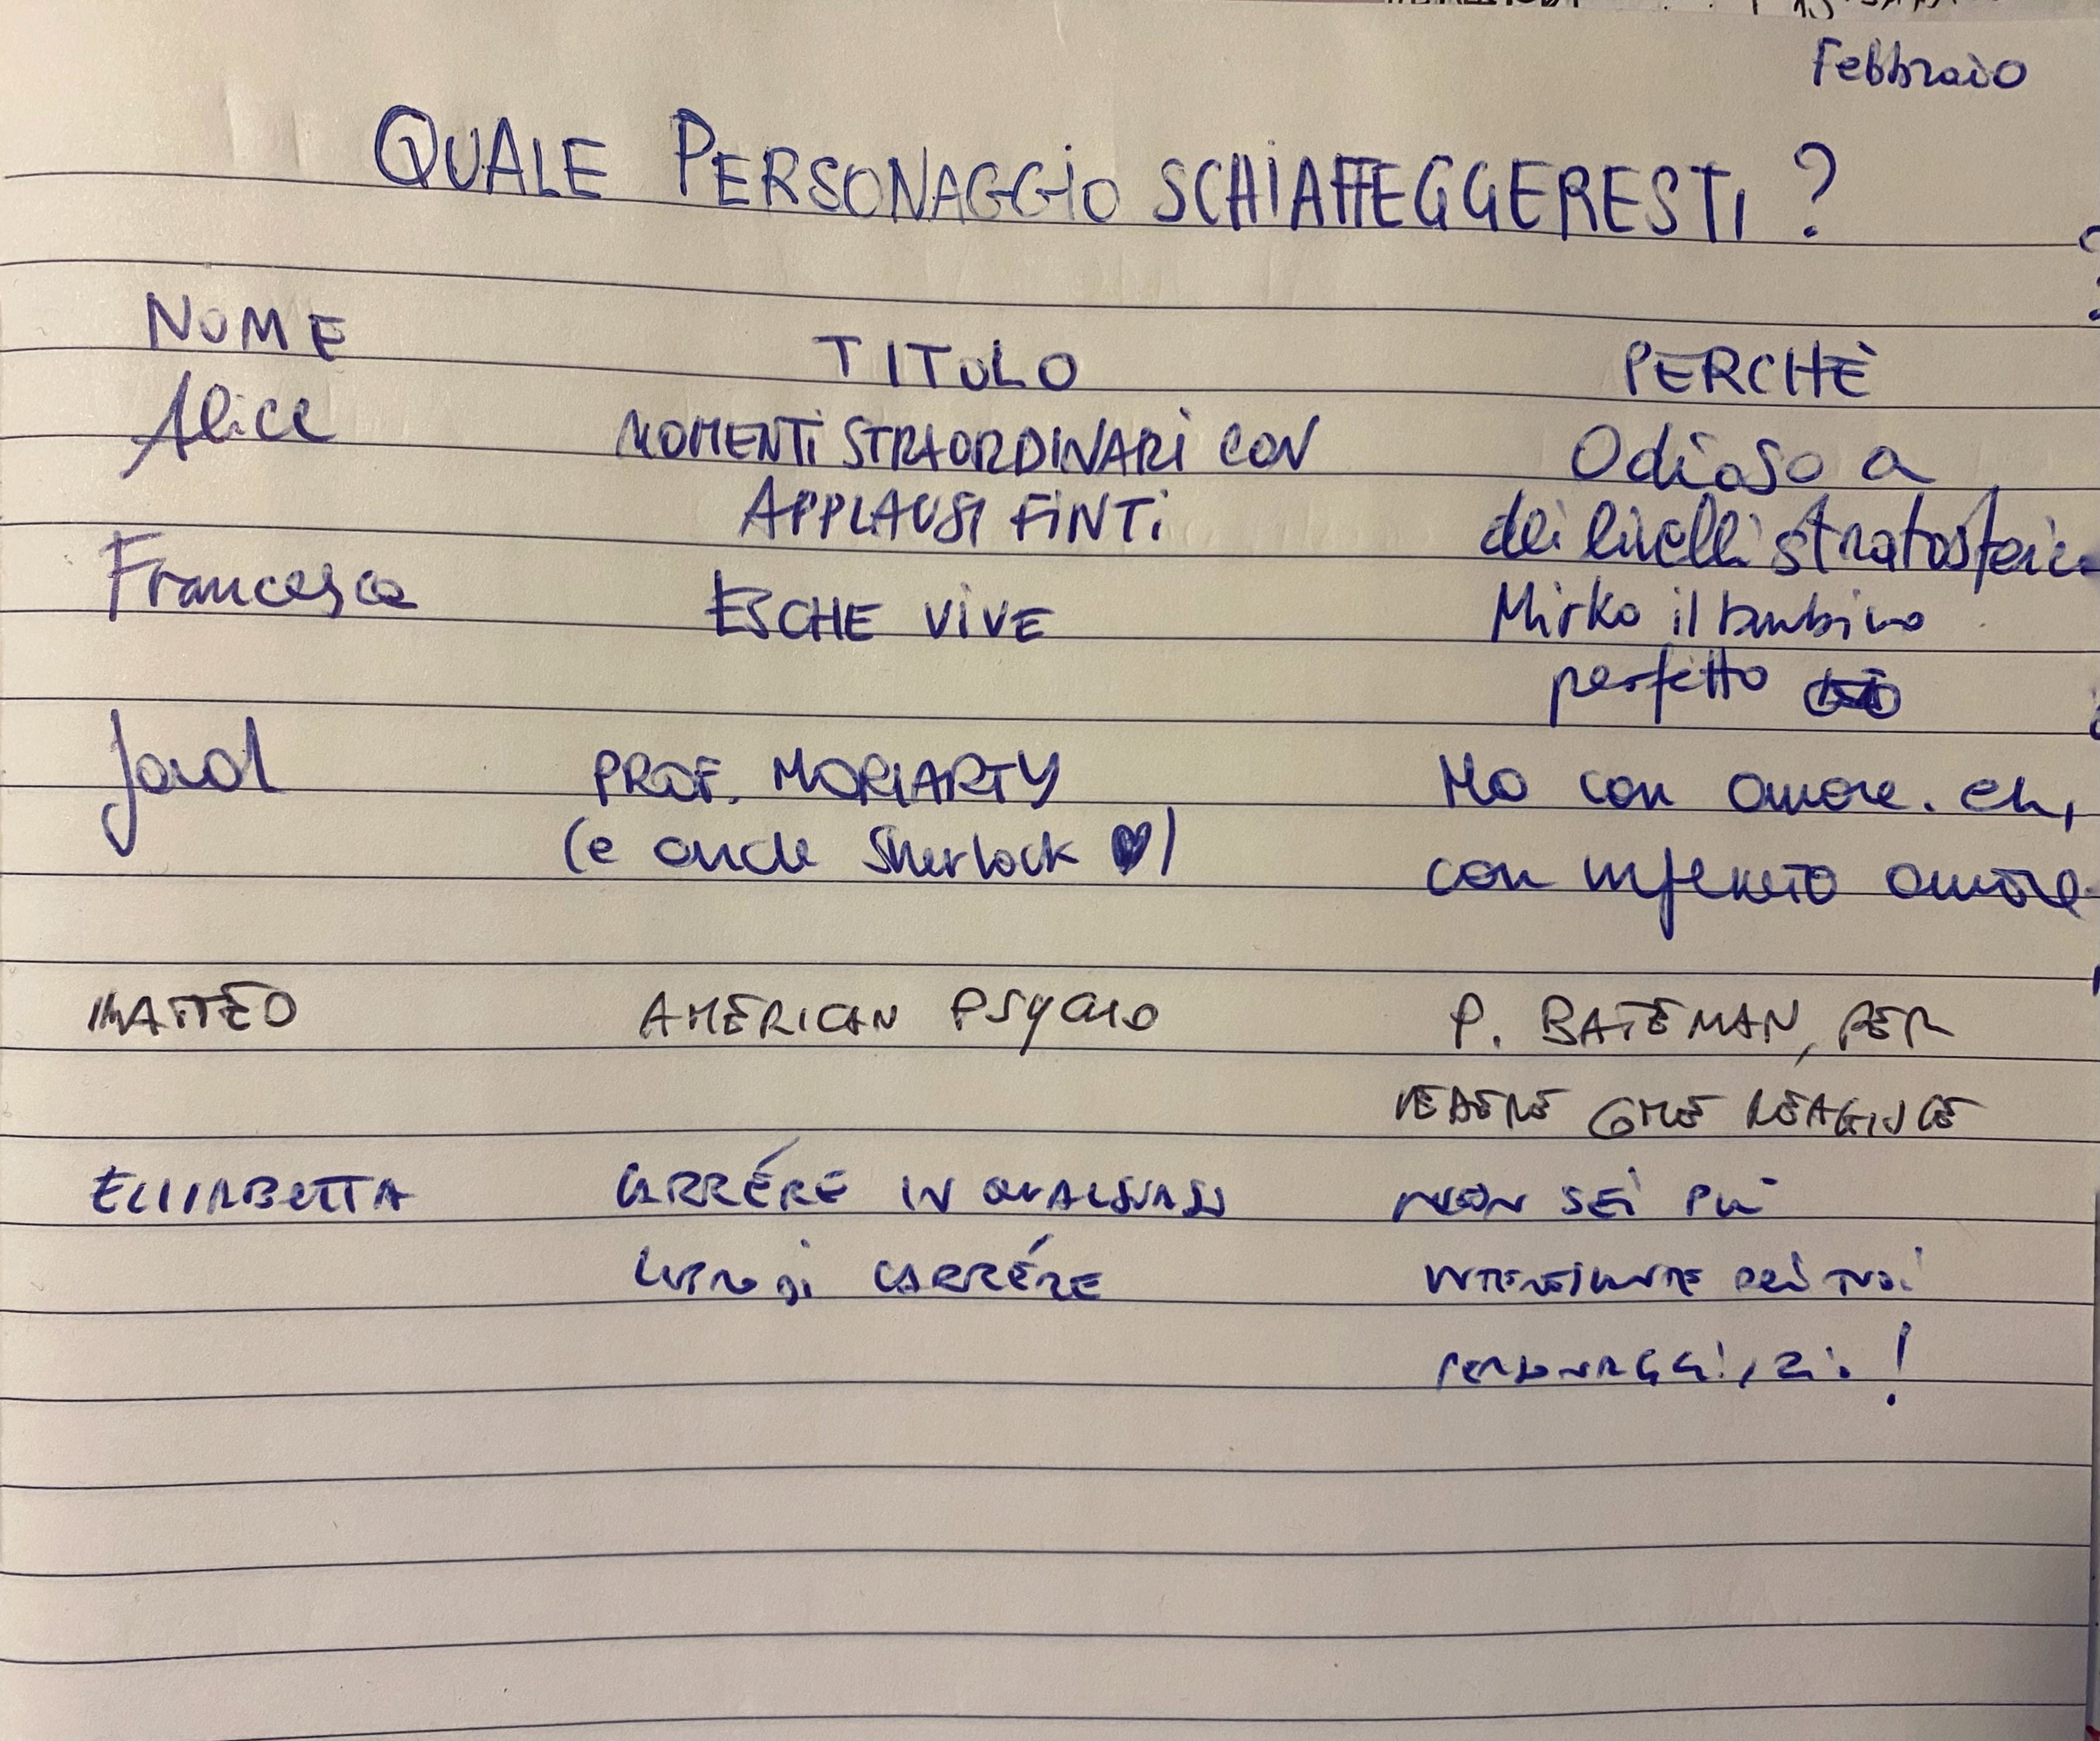 Febbraio
QUALE PERSONAGGIO SCHIAFFEGGERESTI ?
NOME TITOLO PERCHÈ
Alice MOMENTI STRAORDINARI CON Odioso a
APPLAUSI FINTI dei livelli stratosferici
Francesca ESCHE VIVE Mirko il bambino
perfetto
PROF. MORIARTY Ma con amore. eh,
(e anche Sherlock ♥) con infinito amore
MATTEO AMERICAN PSYCHO P. BATEMAN, PER
VEDERE COME REAGISCE
ELISABETTA CARRÉRE IN QUALSIASI NON SEI PIÙ
LIBRO DI CARRÉRE INTERESSANTE DEI TUOI
PERSONAGGI, ZI. !